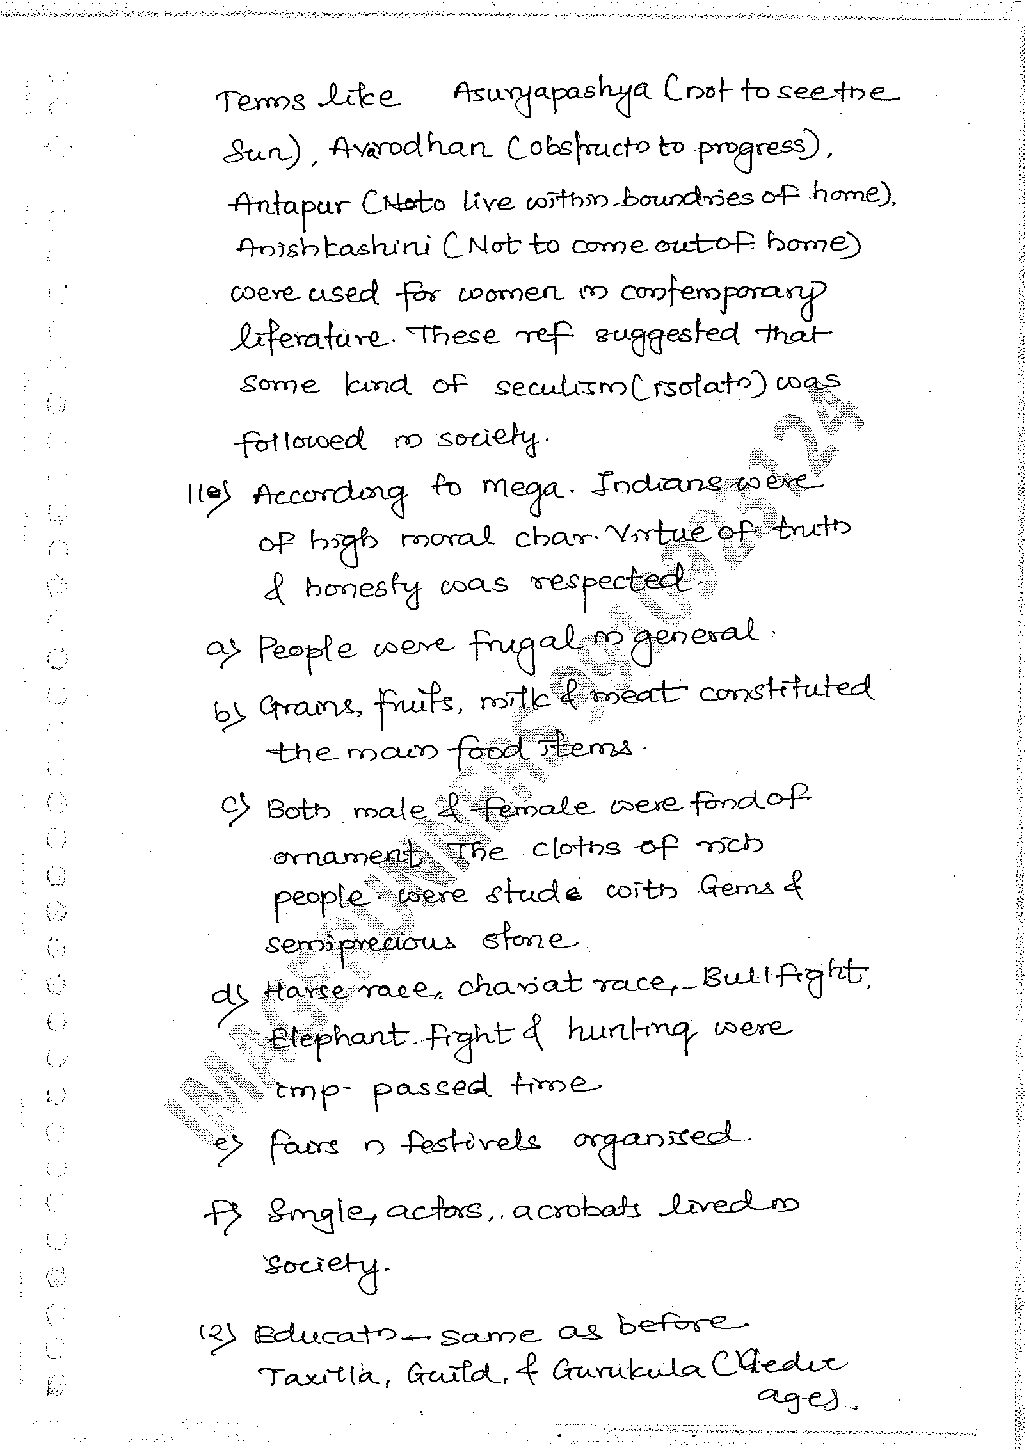 Terms like Asuryapashya (not to see the
Sun), Avarodhan (obstructo to progress),
Antapur (Not to live within boundries of home),
Anishkashini (Not to come out of home)
were used for women in contemporary
literature. These ref suggested that
some kind of seculism (isolatn) was
followed in society.
11@) According to mega. Indians were
of high moral char. Virtue of truth
& honesty was respected.
a) People were frugal in general.
b) Grains, fruits, milk & meat constituted
the main food items.
c) Both male & female were fond of
ornament. The cloths of rich
people were stude with Gems &
semiprecious stone
d) Harse race, chariat race, Bull fight,
Elephant fight & hunting were
imp- passed time
e) fairs n festivels organised.
f) Single, actors, acrobats lived in
society.
12) Educatn - same as before
Taxilla, Guild, & Gurukula (Vedic
ages.